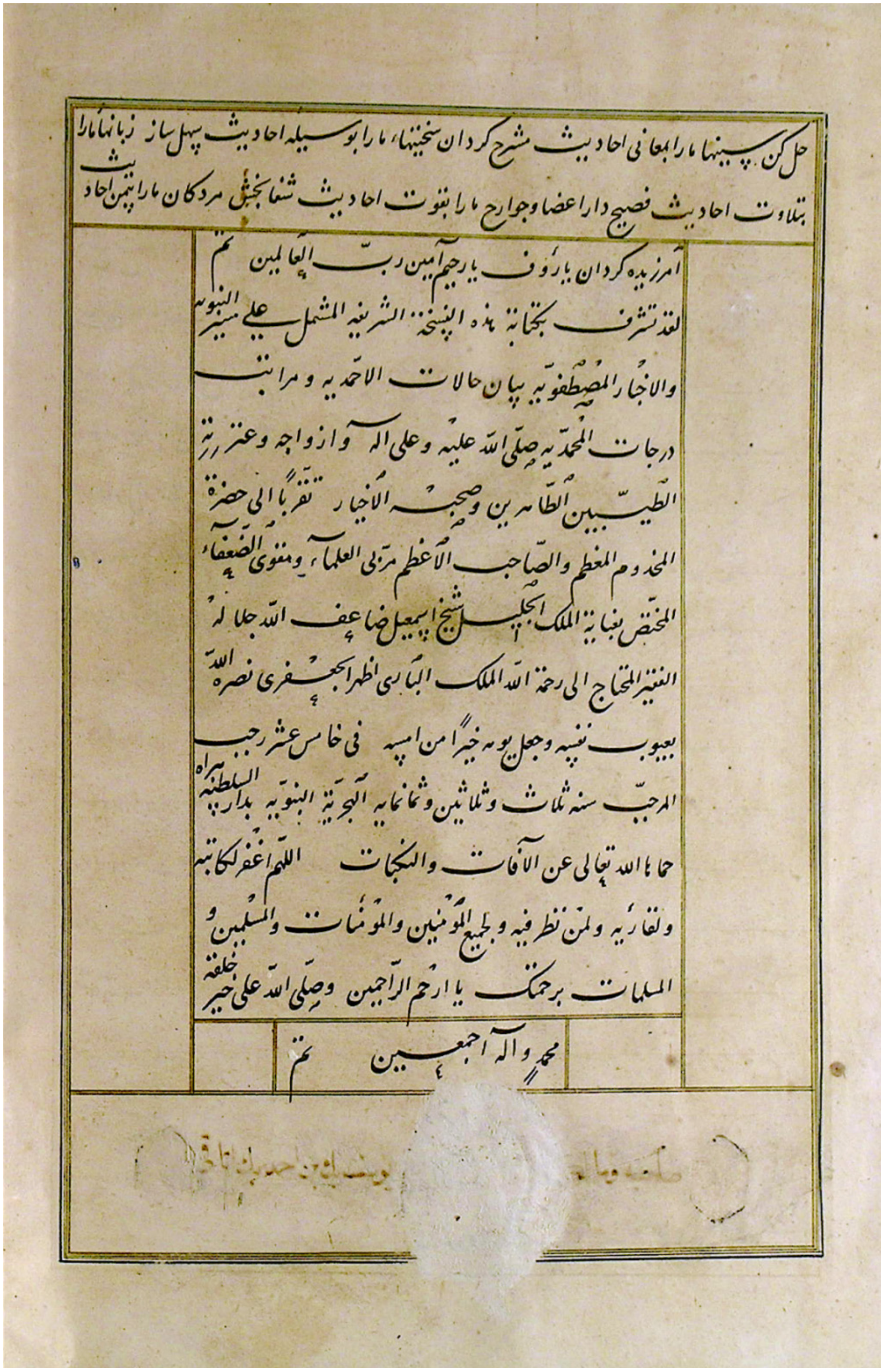 حل کن سینهاء ما را بمعانی احادیث مشرح گردان سختیهاء ما را بوسیله احادیث سهل ساز زبانهاء ما را
بتلاوت احادیث فصیح دار اعضا و جوارح ما را بقوت احادیث شفا بخش مردگان ما را بیمن احادیث
آمرزیده گردان یا رؤف یا رحیم آمین ربّ العالمین تم
لقد تشرف بکتابة هذه النسخة الشریفه المشمل علی سیر النبویه
والاخبار المصطفویه ببیان حالات الاحمدیه و مراتب
درجات المحمدیه صلّی اللّه علیه وعلی اله وازواجه وعترته
الطیّبین الطّاهرین وصحبه الاخیار تقرّباً الی حضرة
المخدوم المعظم والصّاحب الاعظم مربّی العلماء ومقوی الضّعفاء
المختصّ بعنایة الملک الجلیل شیخ اسمعیل ضاعف اللّه جلاله
الفقیر المحتاج الی رحمة اللّه الملک الباری اظهر الجعفری نصره اللّه
بعیوب نفسه وجعل یومه خیراً من امسه فی خامس عشر رجب
المرجبّ سنه ثلاث وثلاثین وثمانمایه الهجریّة النبویّه بدار السلطنه هراه
حماها الله تعالی عن الآفات والنکبات اللّهم اغفر لکاتبه
ولقاریه ولمن نظر فیه ولجمیع المؤمنین والمؤمنات والمسلمین و
المسلمات برحمتک یا ارحم الرّاحمین وصلّی اللّه علی خیر خلقه
محمدٍ واله اجمعین تم